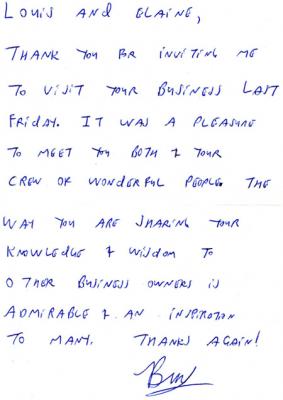 LOUIS AND ELAINE,
THANK YOU FOR INVITING ME
TO VISIT YOUR BUSINESS LAST
FRIDAY. IT WAS A PLEASURE
TO MEET YOU BOTH & YOUR
CREW OF WONDERFUL PEOPLE. THE
WAY YOU ARE SHARING YOUR
KNOWLEDGE & WISDOM TO
OTHER BUSINESS OWNERS IS
ADMIRABLE & AN INSPIRATION
TO MANY. THANKS AGAIN!